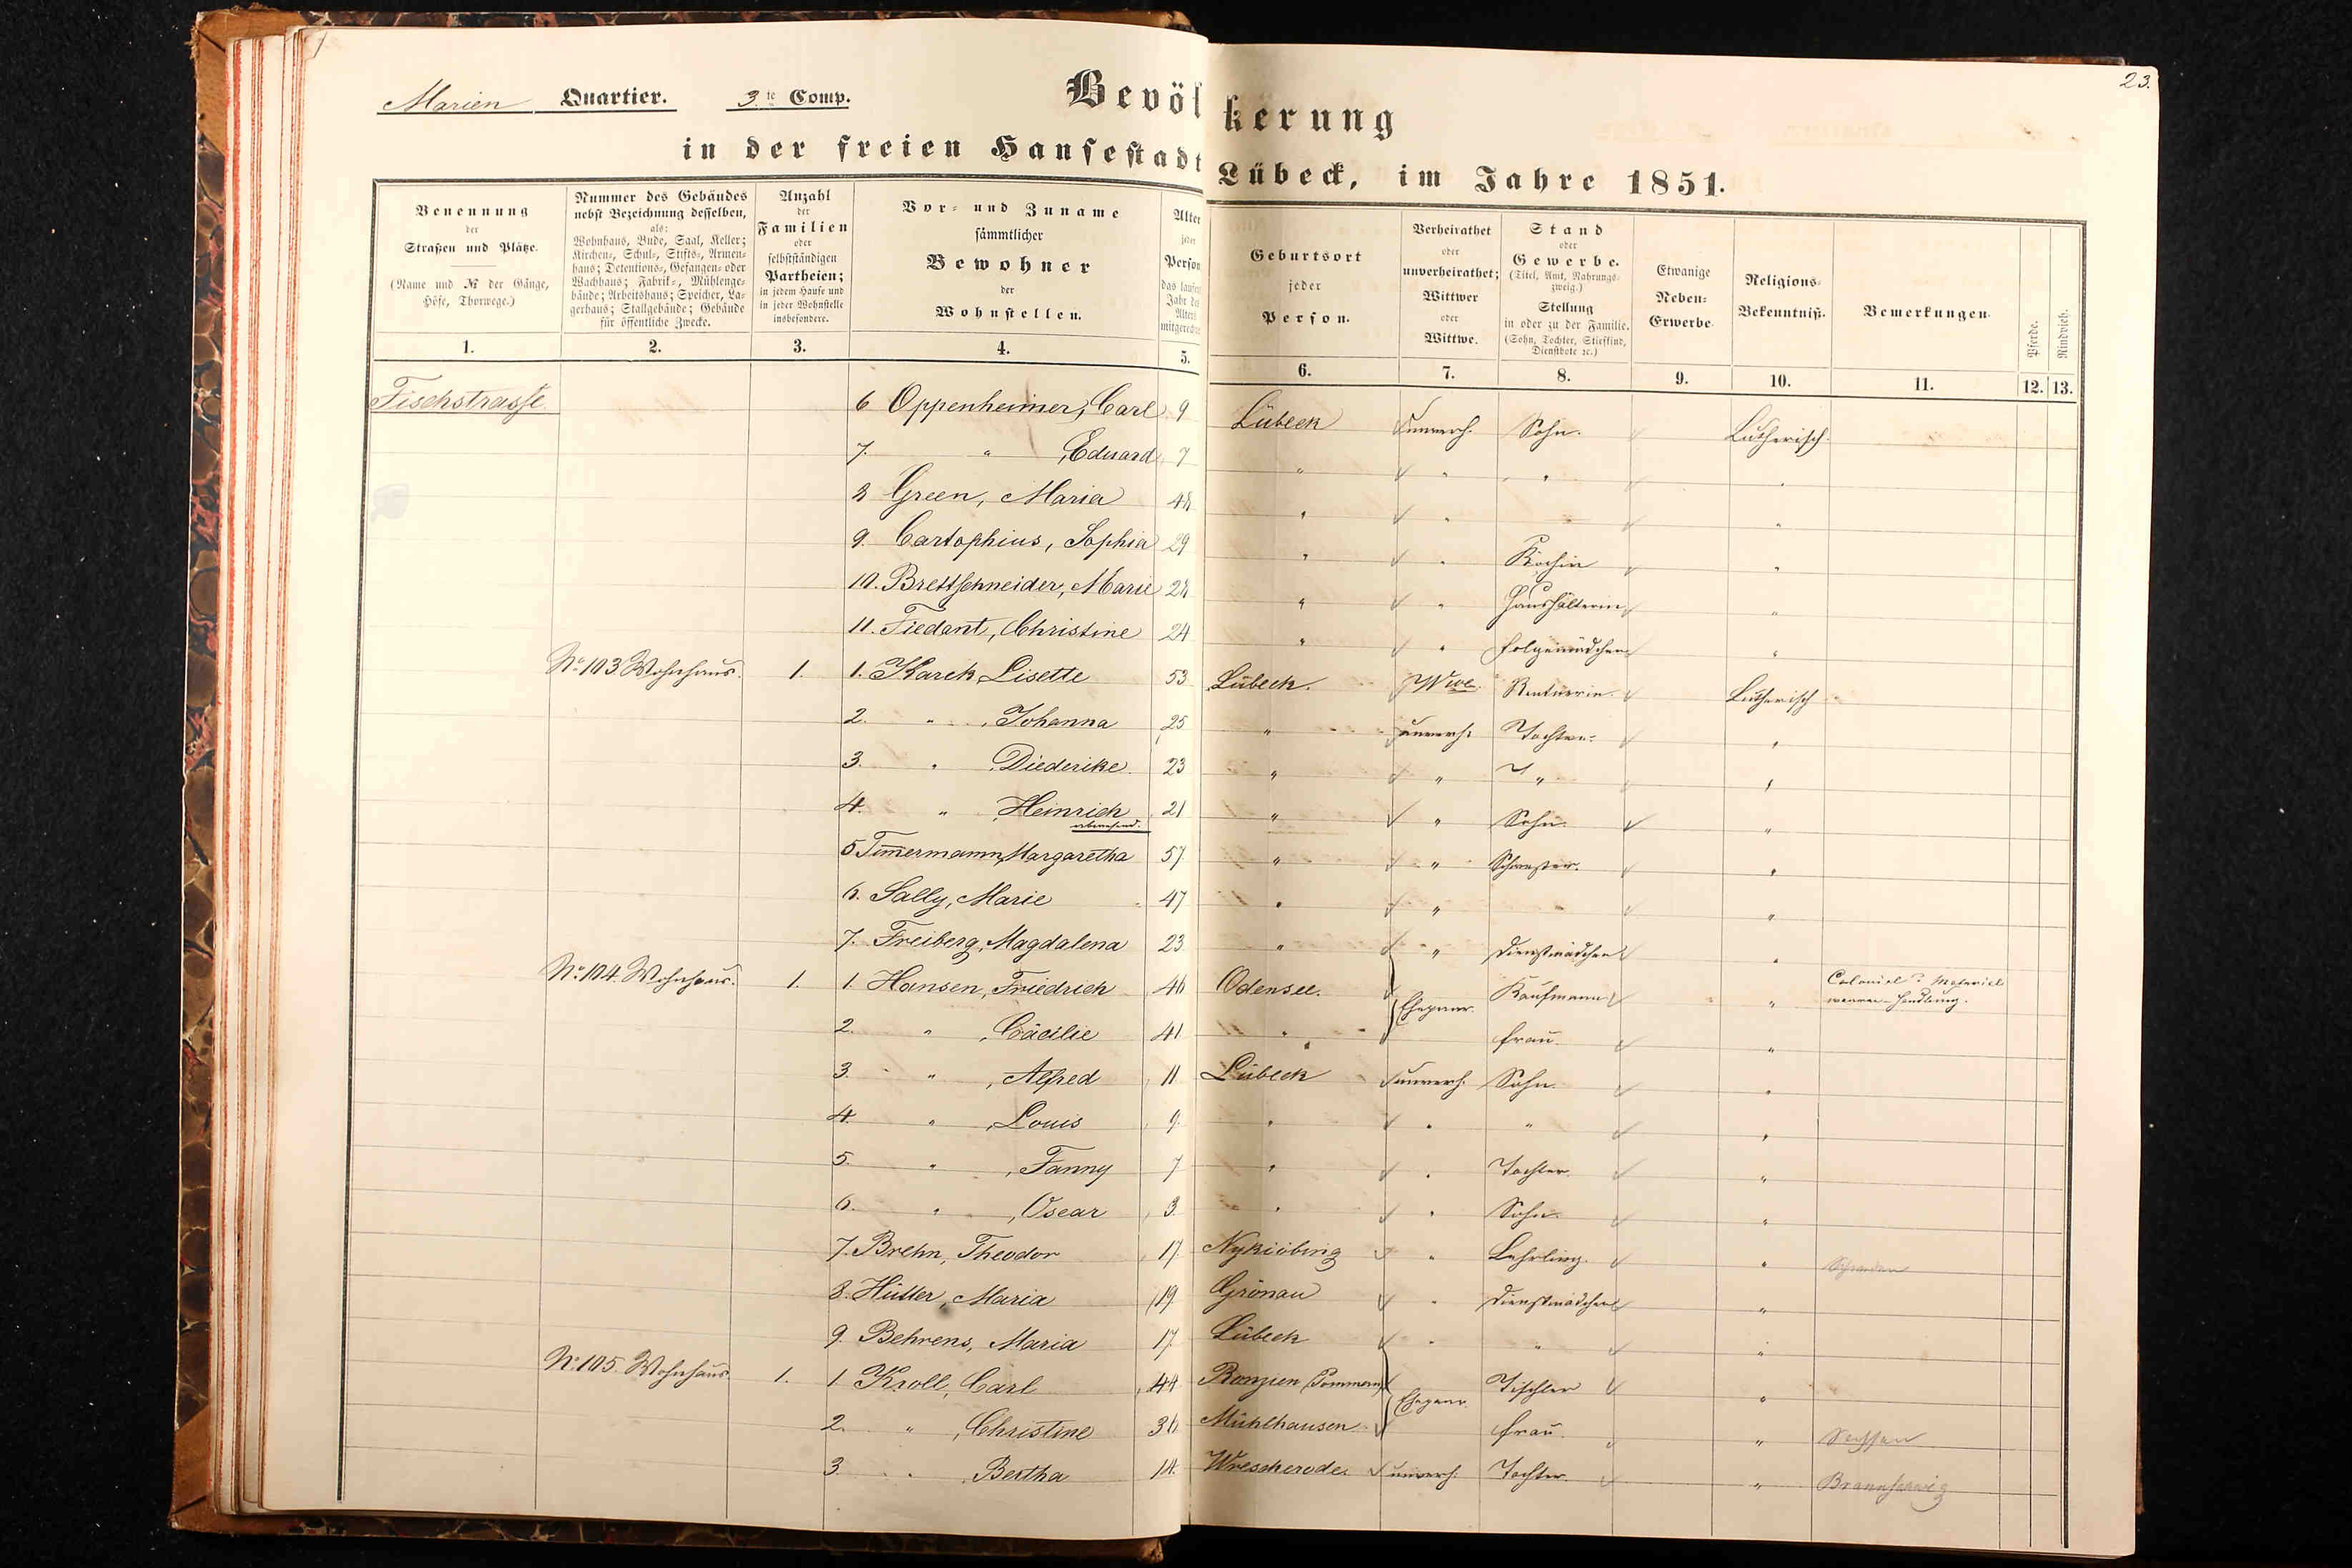 23.
Marien Quartier. 3.te Comp.
Bevölkerung
in der freien Hansestadt Lübeck, im Jahre 1851.
Benennung der Straßen und Plätze. (Name und № der Gänge, Höfe, Thorwege.)
Nummer des Gebäudes nebst Bezeichnung desselben, als: Wohnhaus, Bude, Saal, Keller; Kirchen-, Schul-, Stifts-, Armenhaus; Detentions-, Gefangen- oder Wachhaus; Fabrik-, Mühlengebäude; Arbeitshaus; Speicher, Lagerhaus; Stallgebäude; Gebäude für öffentliche Zwecke.
Anzahl der Familien oder selbstständigen Partheien; in jedem Hause und in jeder Wohnstelle insbesondere.
Vor- und Zuname sämmtlicher Bewohner der Wohnstellen.
Alter jeder Person das laufende Jahr des Alters mitgerechnet
Geburtsort jeder Person.
Verheirathet oder unverheirathet; Wittwer oder Wittwe.
Stand oder Gewerbe. (Titel, Amt, Nahrungszweig.) Stellung in oder zu der Familie. (Sohn, Tochter, Stiefkind, Dienstbote ꝛc.)
Etwanige Neben-Erwerbe.
Religions-Bekenntniß.
Bemerkungen.
Pferde.
Rindvieh.
1. 2. 3. 4. 5. 6. 7. 8. 9. 10. 11. 12. 13.
Fischstrasse 6 Oppenheimer, Carl 9 Lübeck unverh. Sohn. Lutherisch.
7. " , Eduard 7 " " " "
8 Green, Maria 48 " " "
9. Cartophius, Sophia 29 " " Köchin "
10. Brettschneider, Marie 28 " " Haushälterin "
11. Fiedant, Christine 24 " " Folgemädchen "
No. 103. Wohnhaus. 1. 1. Karck, Lisette 53 Lübeck. Wwe. Rentnerin. Lutherisch
2. " , Johanna 25 " unverh. Tochter. "
3. " , Diederike. 23 " " " "
4. " , Heinrich 21 " " Sohn. "
abwesend.
5 Timmermann, Margaretha 57 " " Schwester. "
6. Sally, Marie 47 " " "
7. Freiberg, Magdalena 23 " " Dienstmädchen "
No. 104. Wohnhaus. 1. 1. Hansen, Friedrich 46 Odensee. Ehepaar. Kaufmann " Colonial- u. Material-
waaren-Handlung.
2. " , Cäcilie 41 " Frau. "
3. " , Alfred 11 Lübeck unverh. Sohn. "
4. " , Louis 9. " " " "
5. " , Fanny 7 " " Tochter. "
6. " , Oscar 3. " " Sohn. "
7. Brehn, Theodor 17. Nykiöbing " Lehrling. "
8. Hütter, Maria 19 Grönau " Dienstmädchen "
9. Behrens, Maria 17. Lübeck " " "
No. 105. Wohnhaus. 1. 1. Kroll, Carl 44 (Pommern) Ehepaar. Tischler "
2. " , Christine 36 Mühlhausen Frau. " Sachsen
3. " , Bertha 14. Wrescherode. unverh. Tochter. " Braunschweig